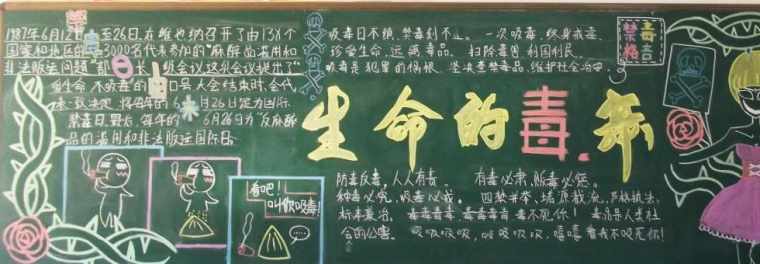 1987年6月12日至26日,在维也纳召开了由138个
国家和地区的 3000名代表参加的"麻醉品滥用和
非法贩运问题"部长级会议。这次会议提出了"
爱生命,不吸毒"的口号。大会结束时,会代
表一致决定,将每年的6月26日定为国际
禁毒日。此后,每年的 6月26日为"反麻醉
品的滥用和非法贩运国际日。
吸毒日不饿,禁毒刻不止。 一次吸毒,终身戒毒,
珍爱生命,远离毒品。 扫除毒害,利国利民。
吸毒是犯罪的祸根。 坚决查禁毒品,维护社会治安。
禁毒
格言
生命的毒.舞
防毒反毒,人人有责。 有毒必肃,贩毒必惩。
种毒必究,吸毒必戒。 四禁并举,堵源截流,严格执法,
标本兼治。 毒毒毒毒,毒毒毒毒 毒不死你! 毒品是人类社
会的公害。 吸吸吸吸,吸吸吸吸,嘻嘻 看我不吸死你!
看吧!
叫你吸毒!